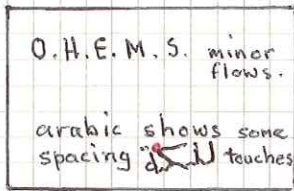 O.H.E.M.S. minor
flows.
arabic shows some
spacing touches